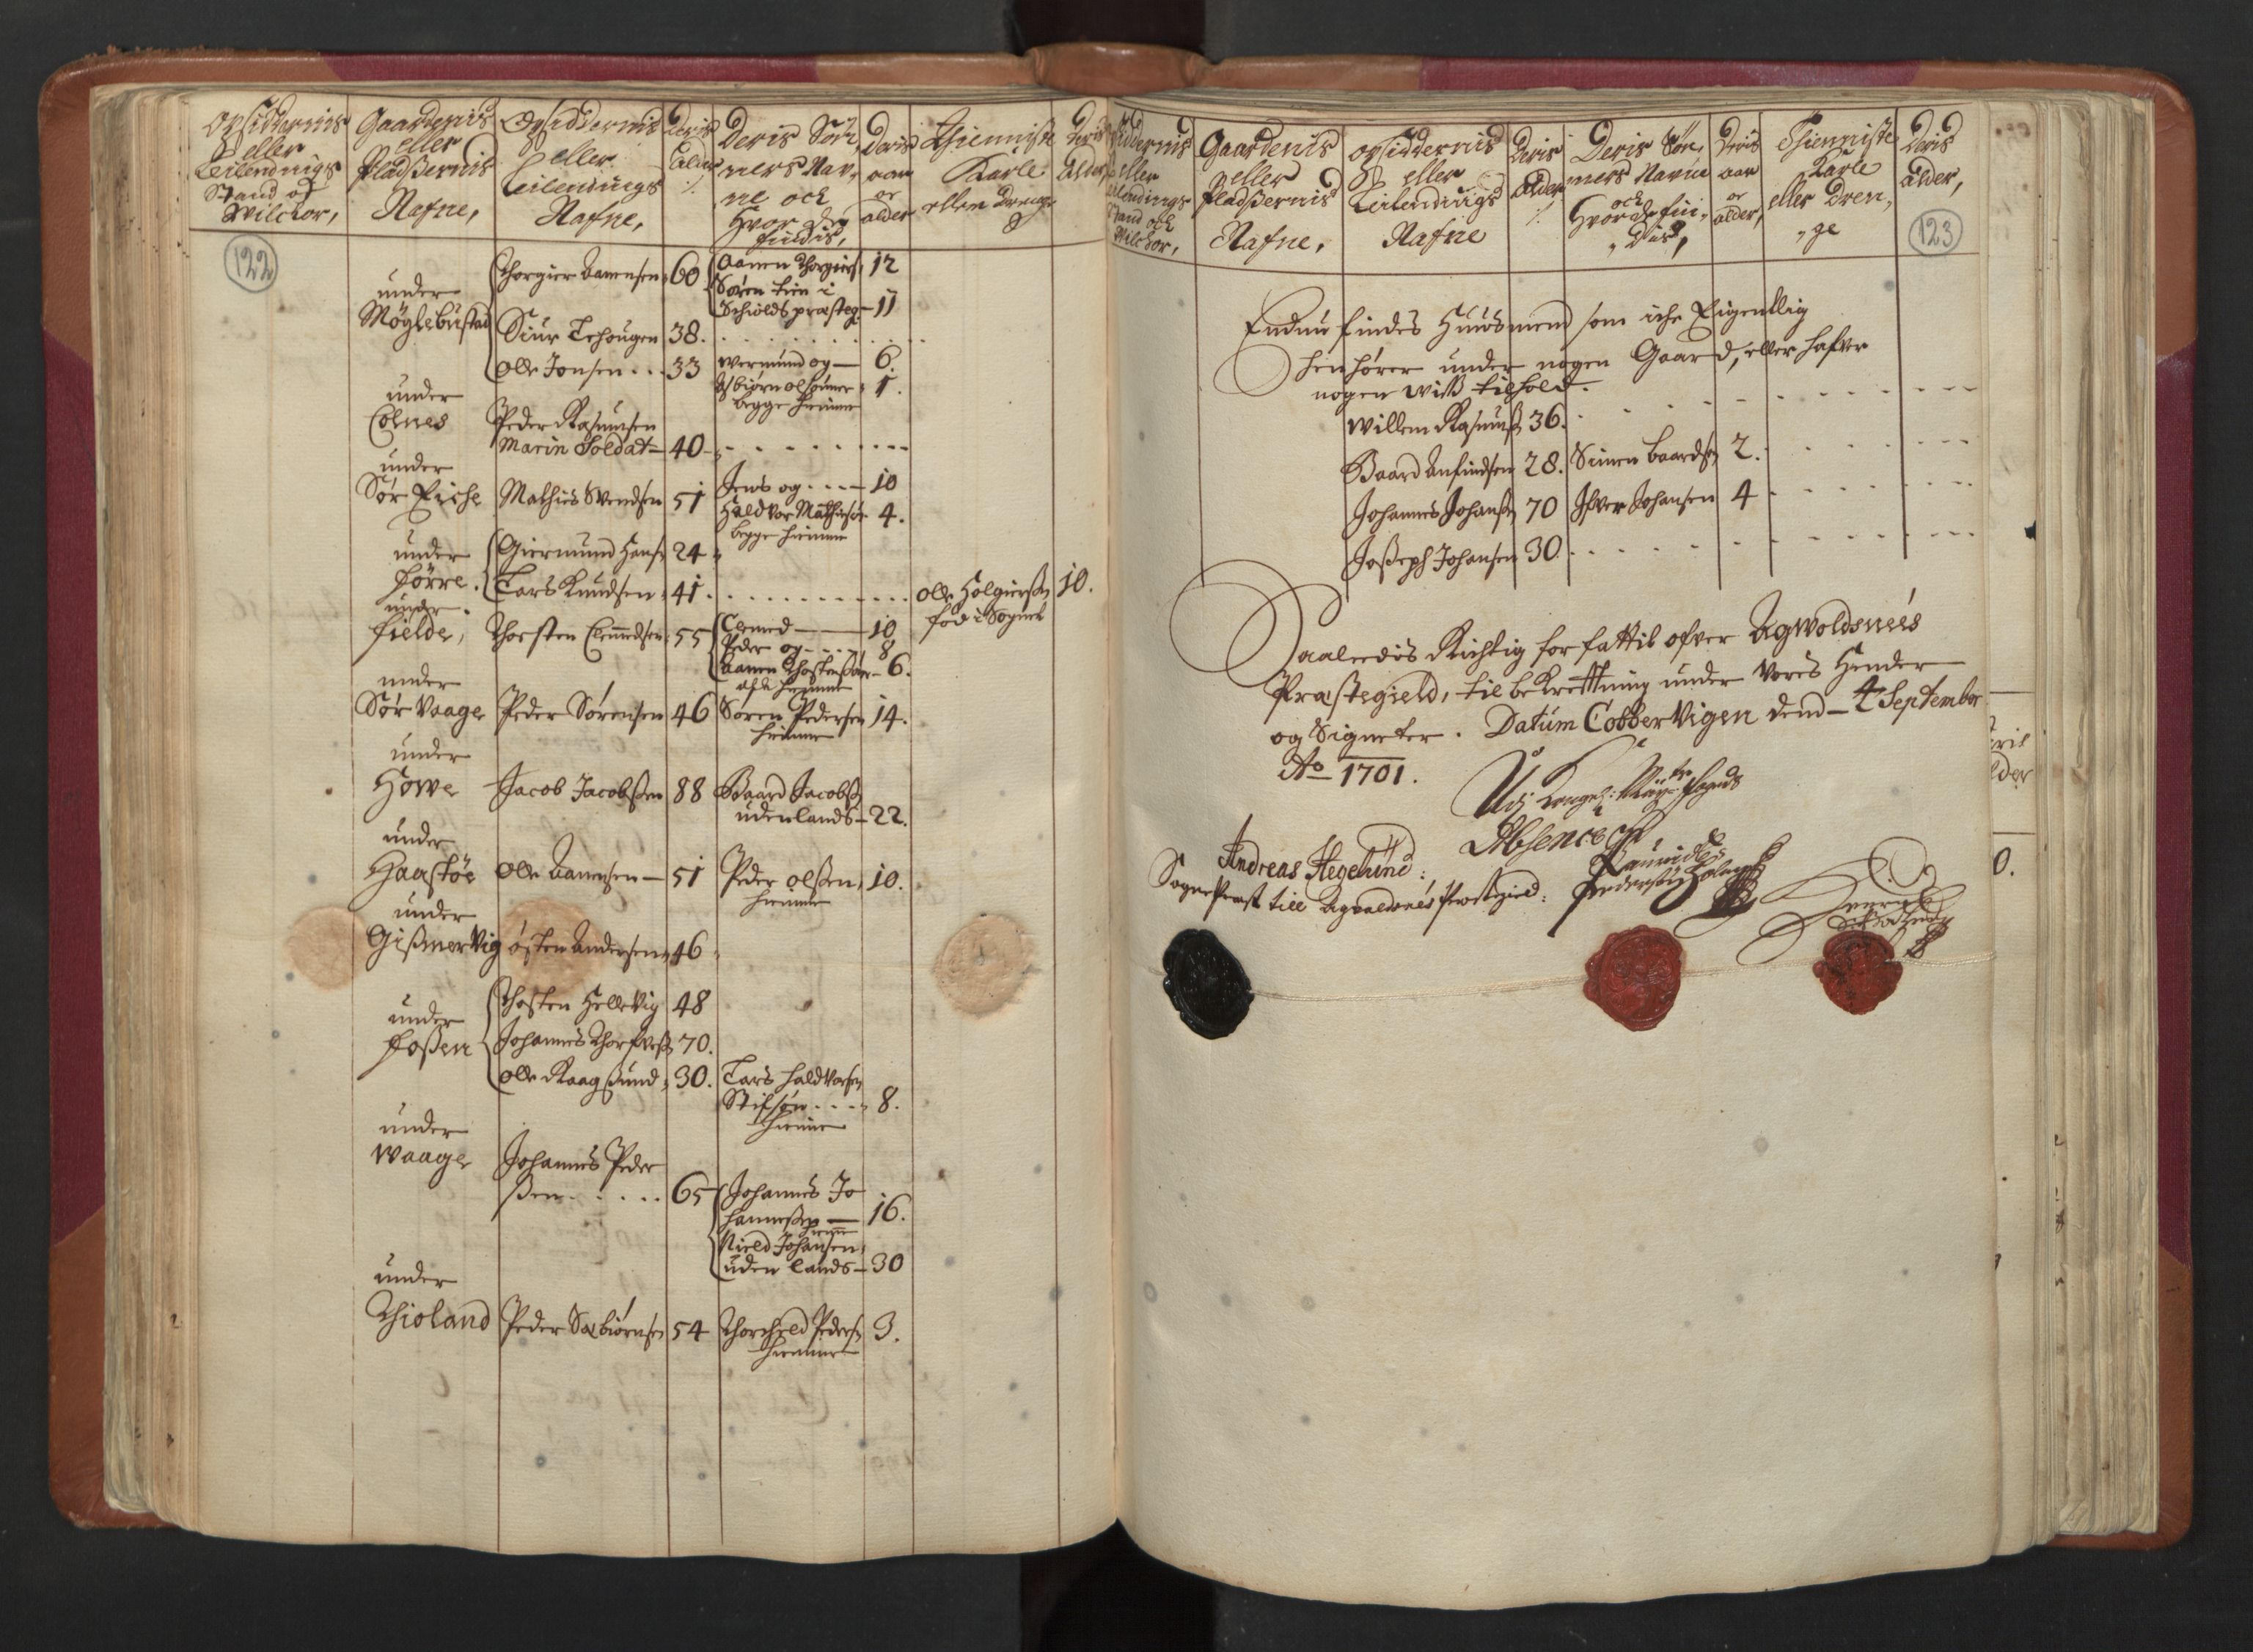 Opsiddernis
eller
Leilendings
Stand og
Wilckor,
Gaardenis
eller
Pladßernis
Nafne,
Opsiddernis
eller
Leilendings
Nafne,
Deris
Alder
Deris Søn,
ners Nav,
ne och
Hvor de
findis,
Deris
aar
or
alder
Thienniste
Karle
eller Drenge
Deris
Alder,
122
under
Møglebustad
Thorgier Aamensen 60 Aanen Thorgiers, 12
Søren tien i
Schiolds præsteg. 11
Siur Tehougen 38.
Olle Jonsen 33 Wermund og 6.
Asbiørn olsønner 1.
begge hiemme
under
Colnes Peder Rasmusen
Marin Soldat 40
under
Sør Eiche Mathies Svendsen 51 Jens og 10
Haldvor Mathiesøn 4.
begge hiemme
under
førre. Giermund Hans 24
Lars Knudsen 41. Olle Holgiersen 10.
fød i Sognet
under
fielde, Thorsten Clemedsen 55 Clemed 10
Peder og 8
Aanen Thostensøn 6.
alle hiemme
under
Sør Vaage Peder Sørensen 46 Søren Pedersen 14.
hiemme
under
Howe Jacob Jacobßen 88 Baard Jacobß
udenlands 22.
under
Haastøe Olle Aamensen 51 Peder olßen, 10.
hiemme
under
Gißmervig østen Andersen 46
under
foßen Thosten Hellevig 48
Johannes Thorfveß 70.
Olle Raagsund 30. Lars Haldvorsen
Stifsøn 8.
hiemme
under
Waage Johannes Peder
ßen 65 Johannes Jo
hanneßen 16.
hiemme
Nield Johansen,
uden lands 30
under
Thioland Peder Sæbiørnsen 54 Thorchild Peders 3.
hiemme
Opsiddernis
eller
Leilendings
Stand och
Wilckor,
Gaardenis
eller
Pladßernis
Nafne,
opsiddernis
eller
Leilendings
Nafne
Deris
Alder
Deris Søn,
ners Navne
och
Hvor de fin,
dis,
Deris
aar
or
alder,
Thienniste
Karle
eller Dren,
ge
Deris
alder,
123
Endnu findes Huusmend som iche Eigentlig
henhører under nogen Gaard, eller hafver
nogen Wiß tilhold.
Willem Rasmuß 36.
Baard Anfindsen 28. Simen Baardsen 2.
Johannes Johanß 70 Ifver Johansen 4
Joßeph Johansen 30.
Saaledis Richtig forfattit ofver Agwoldsneés
Præstegield, til bekrefftning under Vores Hender
og Signeter. Datum CobberVigen dend 4 September
Ao 1701.
Udj Kongel: Maytz fogeds
Absence
Andreas Hegelund:
Sogne Præst till Agvaldsnés Præstegield: